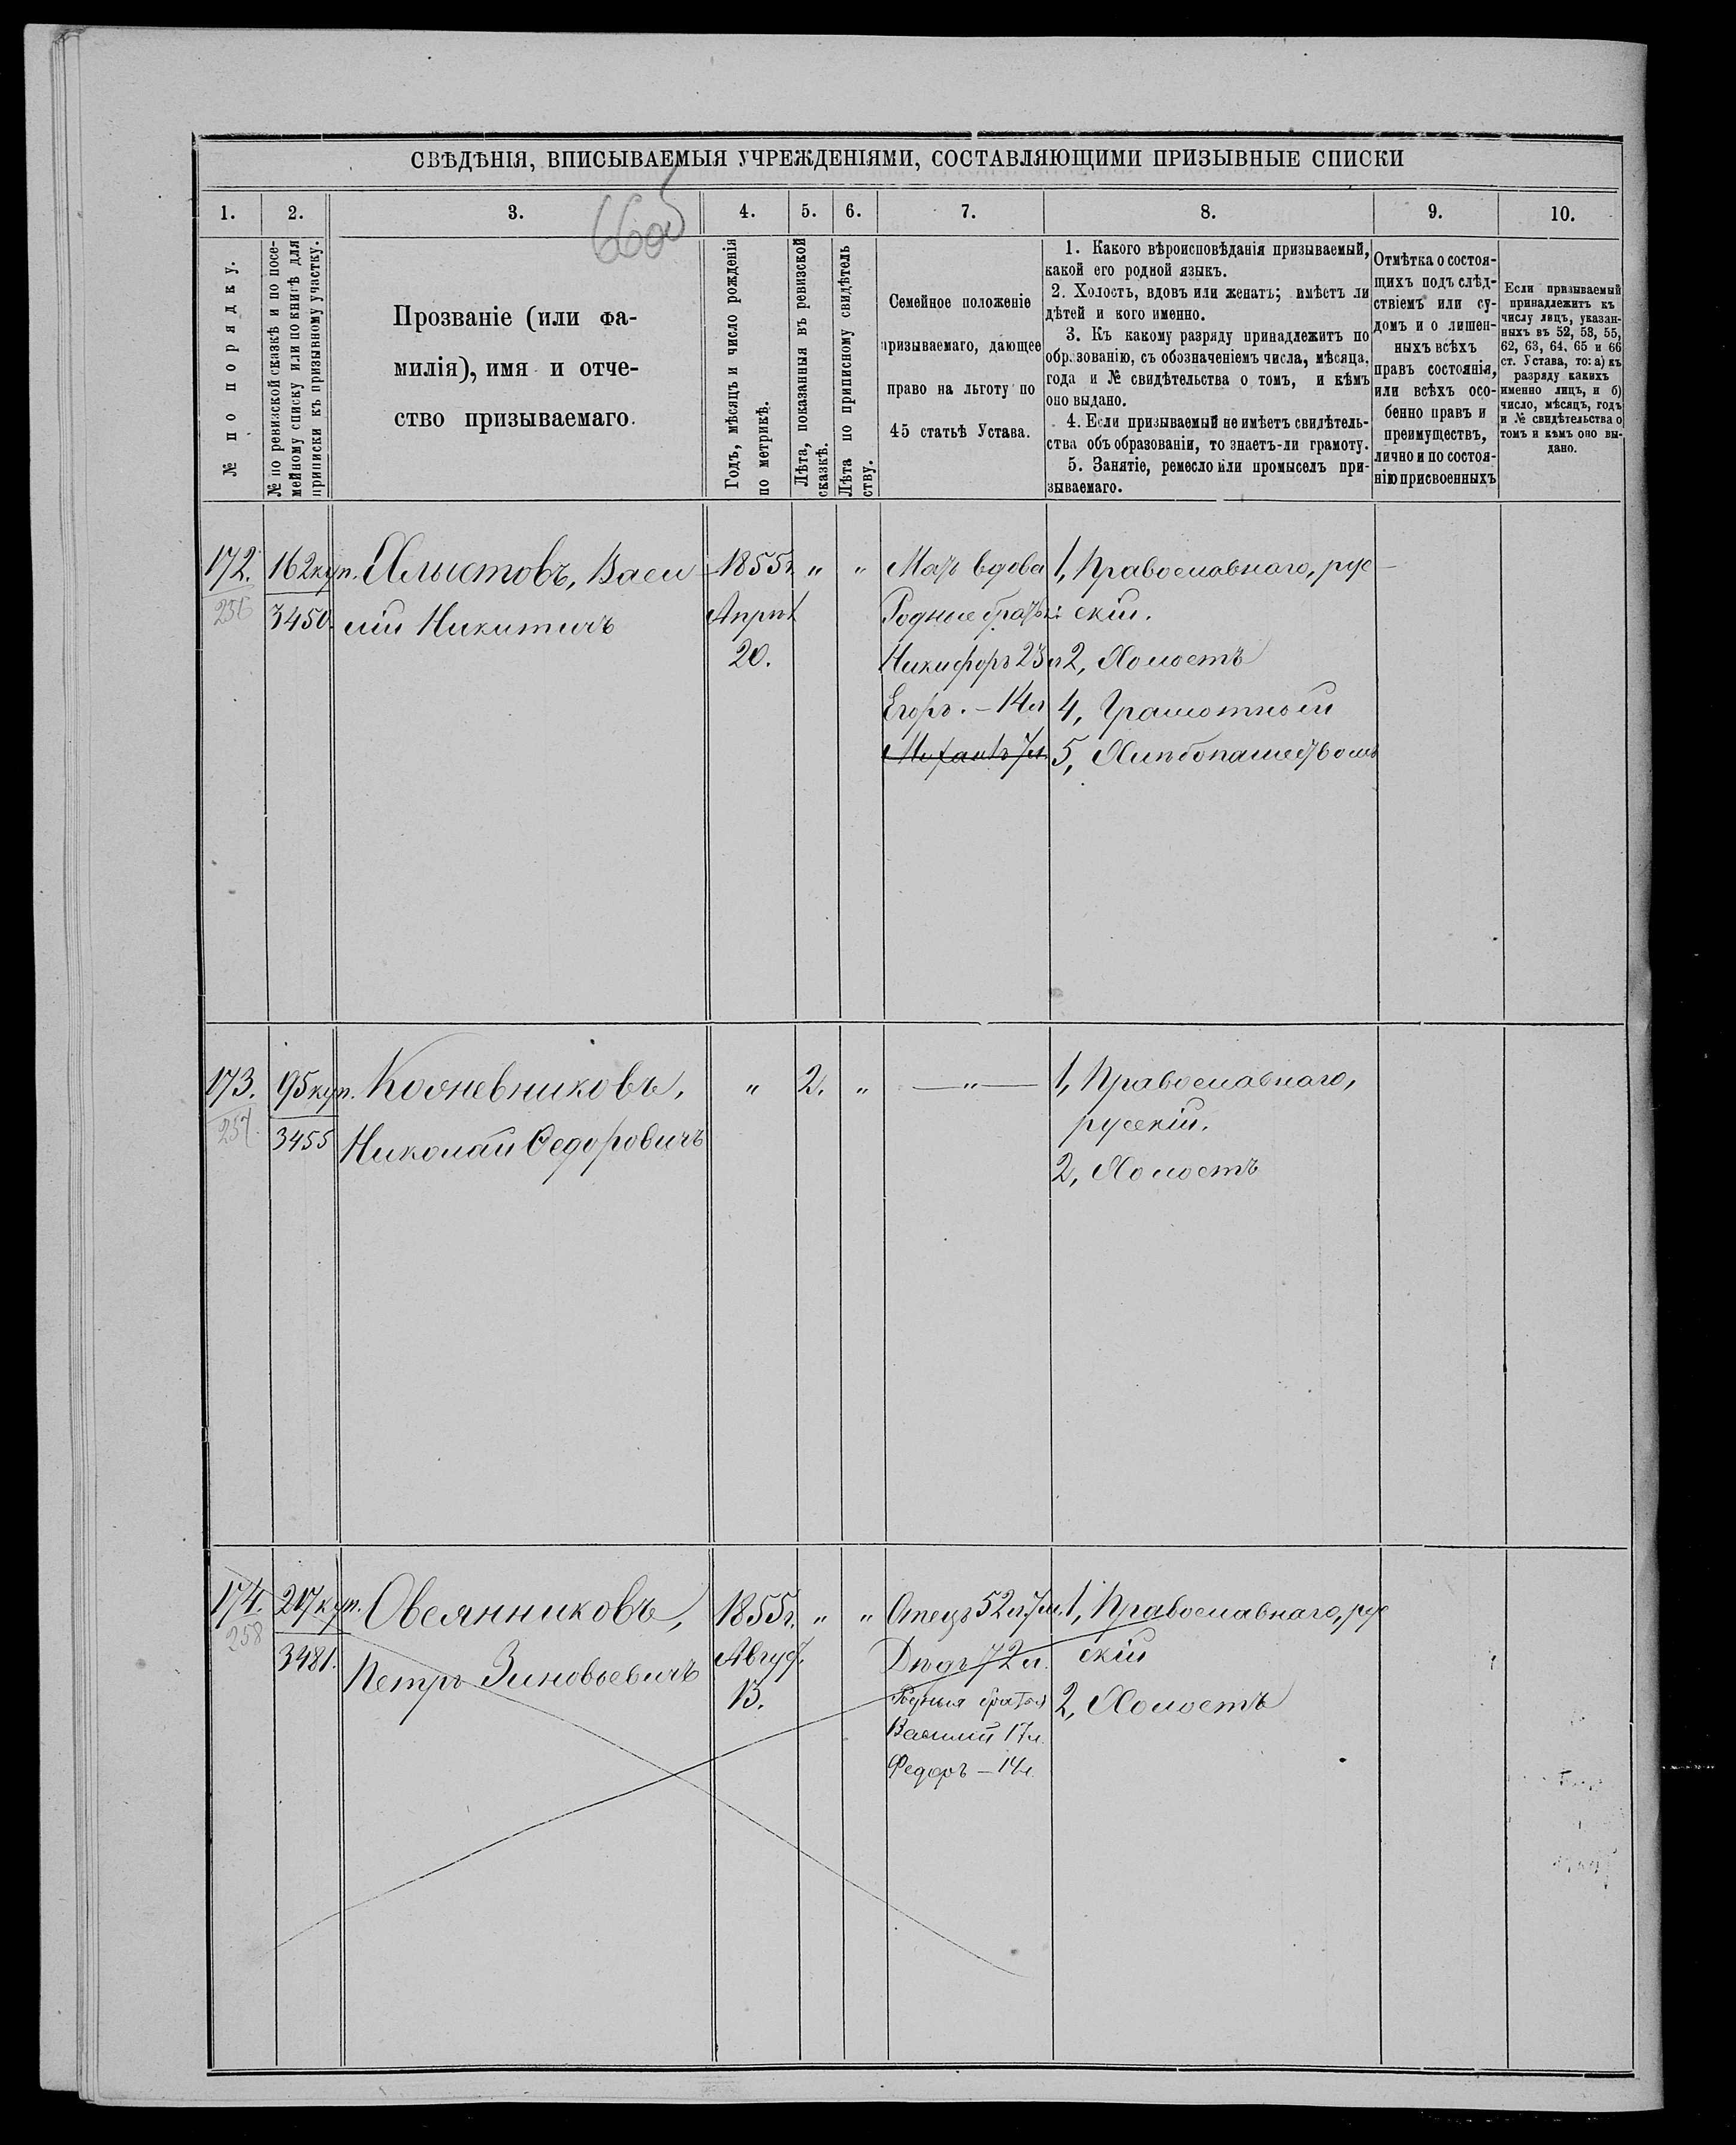 СВѢДѢНІЯ, ВПИСЫВАЕМЫЯ УЧРЕЖДЕНІЯМИ, СОСТАВЛЯЮЩИМИ ПРИЗЫВНЫЕ СПИСКИ
1. 2. 3. 4. 5. 6. 7. 8. 9. 10.
№ по порядку.
№ по ревизской сказкѣ и по посе-
мейному списку или по книгѣ для
приписки къ призывному участку.
Прозваніе (или фа-
милія), имя и отче-
ство призываемаго.
Годъ, мѣсяцъ и число рожденія
по метрикѣ.
Лѣта, показанныя въ ревизской
сказкѣ.
Лѣта по приписному свидѣтель
ству.
Семейное положеніе
призываемаго, дающее
право на льготу по
45 статьѣ Устава.
1. Какого вѣроисповѣданія призываемый,
какой его родной языкъ.
2. Холостъ, вдовъ или женатъ; имѣетъ ли
дѣтей и кого именно.
3. Къ какому разряду принадлежитъ по
образованію, съ обозначеніемъ числа, мѣсяца,
года и № свидѣтельства о томъ, и кѣмъ
оно выдано.
4. Если призываемый не имѣетъ свидѣтель-
ства объ образованіи, то знаетъ-ли грамоту.
5. Занятіе, ремесло или промыселъ при-
зываемаго.
Отмѣтка о состоя-
щихъ подъ слѣд-
ствіемъ или су-
домъ и о лишен-
ныхъ всѣхъ
правъ состоянія,
или всѣхъ осо-
бенно правъ и
преимуществъ,
лично и по состоя-
нію присвоенныхъ
Если призываемый
принадлежитъ къ
числу лицъ, указан-
ныхъ въ 52, 53, 55,
62, 63, 64, 65 и 66
ст. Устава, то: а) къ
разряду какихъ
именно лицъ, и б)
число, мѣсяцъ, годъ
и № свидѣтельства о
томъ и кѣмъ оно вы-
дано.
172. 162 куп. Хлыстовъ, Васи 1855г. " " Мать вдова 1, Православнаго, рус
256 3450. лій Никитичъ Апрѣл Родные братья: скій.
20. Никифоръ 23 л 2, Холостъ
Егоръ. — 14 л 4, Грамотный
Михаилъ 7 л. 5, Хлѣбопашествомъ
173. 95 куп. Кожевниковъ, " 2. " — " — 1, Православнаго,
257. 3455 Николай Ѳедоровичъ русскій.
2, Холостъ
174. 217 куп. Овсянниковъ, 1855г. " " Отецъ 52 л. 7 м. 1, Православнаго, рус
258 3481. Петръ Зиновьевичъ Август. Дѣдъ 72 л. скій
13. Родныя братья 2, Холостъ
Василій 17 л.
Федоръ — 14 л.